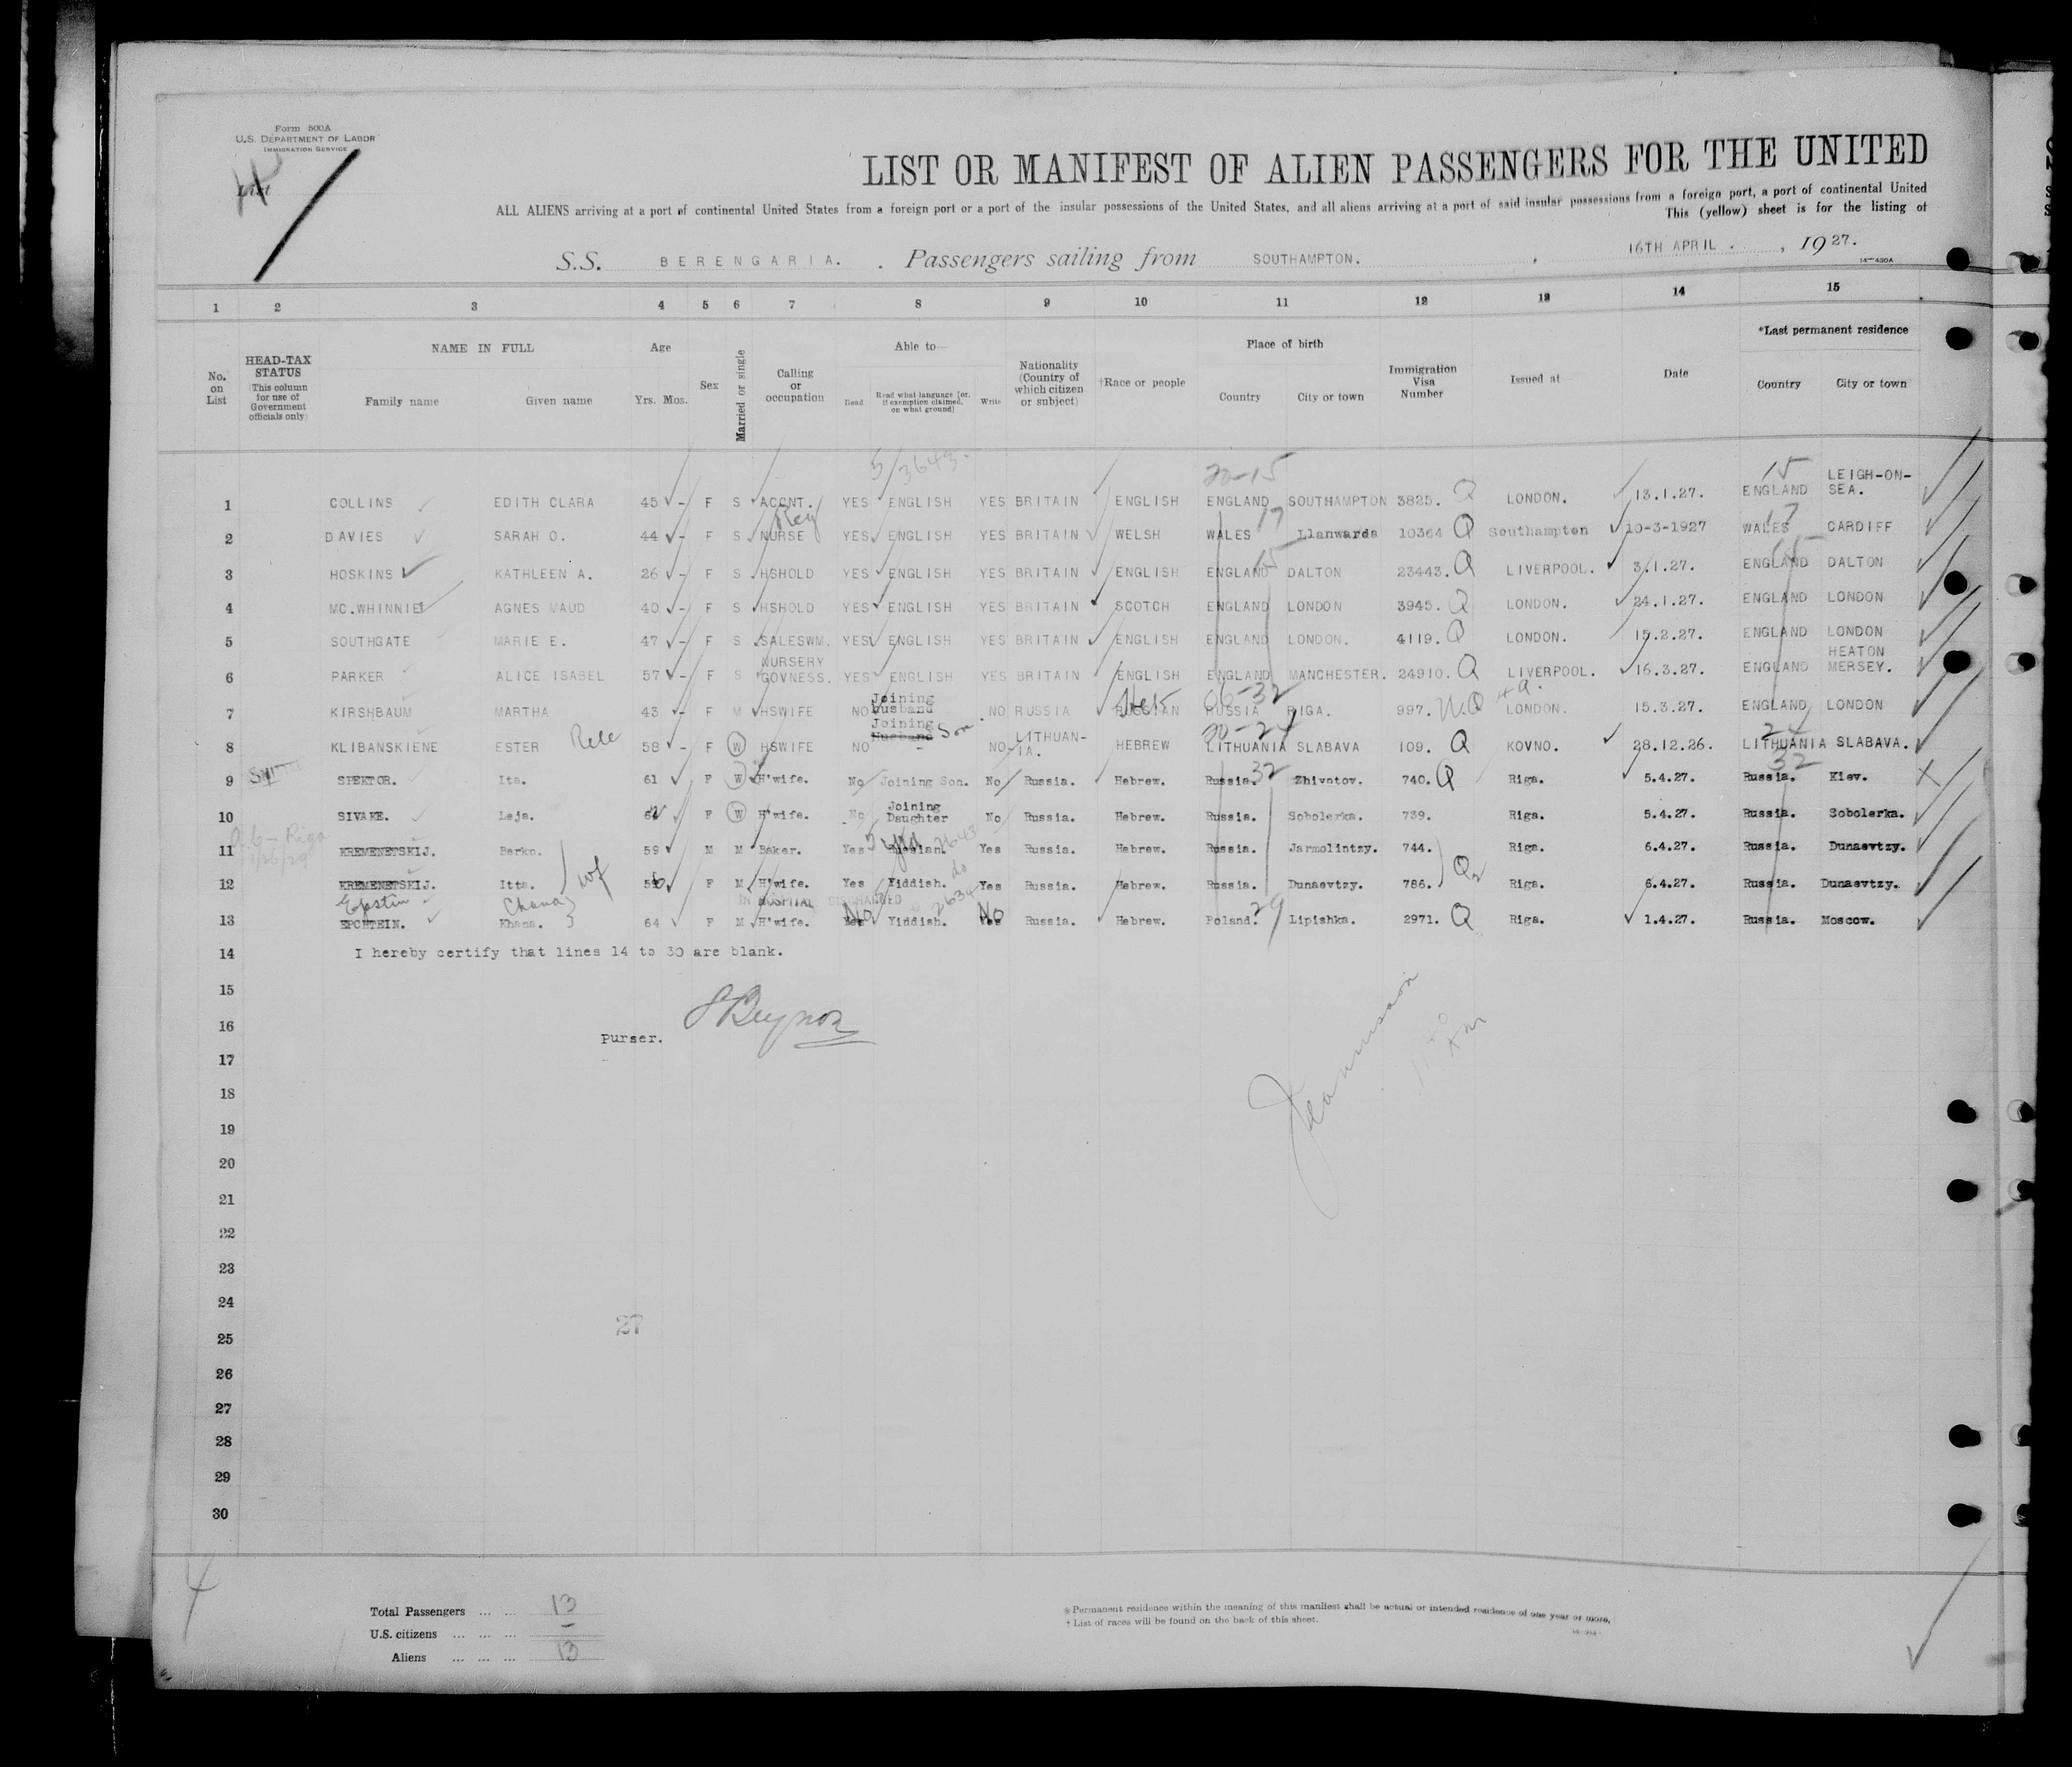 Form 500A
U.S. DEPARTMENT OF LABOR
IMMIGRATION SERVICE
LIST OR MANIFEST OF ALIEN PASSENGERS FOR THE UNITED
ALL ALIENS arriving at a port of continental United States from a foreign port or a port of the insular possessions of the United States, and all aliens arriving at a port of said insular possessions from a foreign port, a port of continental United
This (yellow) sheet is for the listing of
S.S. BERENGARIA. Passengers sailing from SOUTHAMPTON. 16TH APRIL. , 1927.
1 2 3 4 5 6 7 8 9 10 11 12 13 14 15
No. on List
HEAD-TAX STATUS (This column for use of Government officials only)
NAME IN FULL
Family name Given name
Age
Yrs. Mos.
Sex
Married or single
Calling or occupation
Able to—
Read Read what language [or, if exemption claimed, on what ground] Write
Nationality (Country of which citizen or subject)
†Race or people
Place of birth
Country City or town
Immigration Visa Number
Issued at—
Date
*Last permanent residence
Country City or town
5/3643- 20-15 15
1 COLLINS EDITH CLARA 45 - F S ACCNT. YES ENGLISH YES BRITAIN ENGLISH ENGLAND SOUTHAMPTON 3825. Q LONDON. 13.1.27. ENGLAND LEIGH-ON-SEA.
2 DAVIES SARAH O. 44 - F S NURSE YES ENGLISH YES BRITAIN WELSH WALES 17 Llanwarda 10364 Q Southampton 10-3-1927 WALES 17 CARDIFF
3 HOSKINS KATHLEEN A. 26 - F S HSHOLD YES ENGLISH YES BRITAIN ENGLISH ENGLAND 15 DALTON 23443. Q LIVERPOOL. 3.1.27. ENGLAND 15 DALTON
4 MC.WHINNIE AGNES MAUD 40 - F S HSHOLD YES ENGLISH YES BRITAIN SCOTCH ENGLAND LONDON 3945. Q LONDON. 24.1.27. ENGLAND LONDON
5 SOUTHGATE MARIE E. 47 - F S SALESWM. YES ENGLISH YES BRITAIN ENGLISH ENGLAND LONDON. 4119. Q LONDON. 15.2.27. ENGLAND LONDON
6 PARKER ALICE ISABEL 57 - F S NURSERY GOVNESS. YES ENGLISH YES BRITAIN ENGLISH ENGLAND MANCHESTER. 24910. Q LIVERPOOL. 16.3.27. ENGLAND HEATON MERSEY.
7 KIRSHBAUM MARTHA 43 - F M HSWIFE NO Joining Husband NO RUSSIA RUSSIAN Heb 06-32 RUSSIA RIGA. 997. N.Q LONDON. 15.3.27. ENGLAND LONDON
8 KLIBANSKIENE ESTER 58 - F W HSWIFE NO Joining Husband Son NO LITHUAN-IA. HEBREW 20-24 LITHUANIA SLABAVA 109. Q KOVNO. 28.12.26. 24 LITHUANIA SLABAVA.
9 SPEKTOR. Ita. 61 F W H'wife. No Joining Son. No Russia. Hebrew. Russia. 32 Zhivotov. 740. Q Riga. 5.4.27. 32 Russia. Kiev.
10 SIVAKE. Leja. F W H'wife. No Joining Daughter No Russia. Hebrew. Russia. Sobolerka. 739. Riga. 5.4.27. Russia. Sobolerka.
11 KREMENETSKIJ. Berko. 59 M M Baker. Yes Russian. Yes Russia. Hebrew. Russia. Jarmolintzy. 744. Riga. 6.4.27. Russia. Dunaevtzy.
12 KREMENETSKIJ. Itta. wf F M H'wife. Yes Yiddish. Yes Russia. Hebrew. Russia. Dunaevtzy. 786. Riga. 6.4.27. Russia. Dunaevtzy.
Epstin Chana IN HOSPITAL DISCHARGED
13 EPCHTEIN. Khana. 64 F M H'wife. Yes No Yiddish. Yes No Russia. Hebrew. Poland. 29 Lipishka. 2971. Q Riga. 1.4.27. Russia. Moscow.
14 I hereby certify that lines 14 to 30 are blank.
15
16
Purser.
17
18
19
20
21
22
23
24
27
25
26
27
28
29
30
4
Total Passengers ... ... 13
U.S. citizens ... ... ... –
Aliens ... ... ... 13
* Permanent residence within the meaning of this manifest shall be actual or intended residence of one year or more.
† List of races will be found on the back of this sheet.